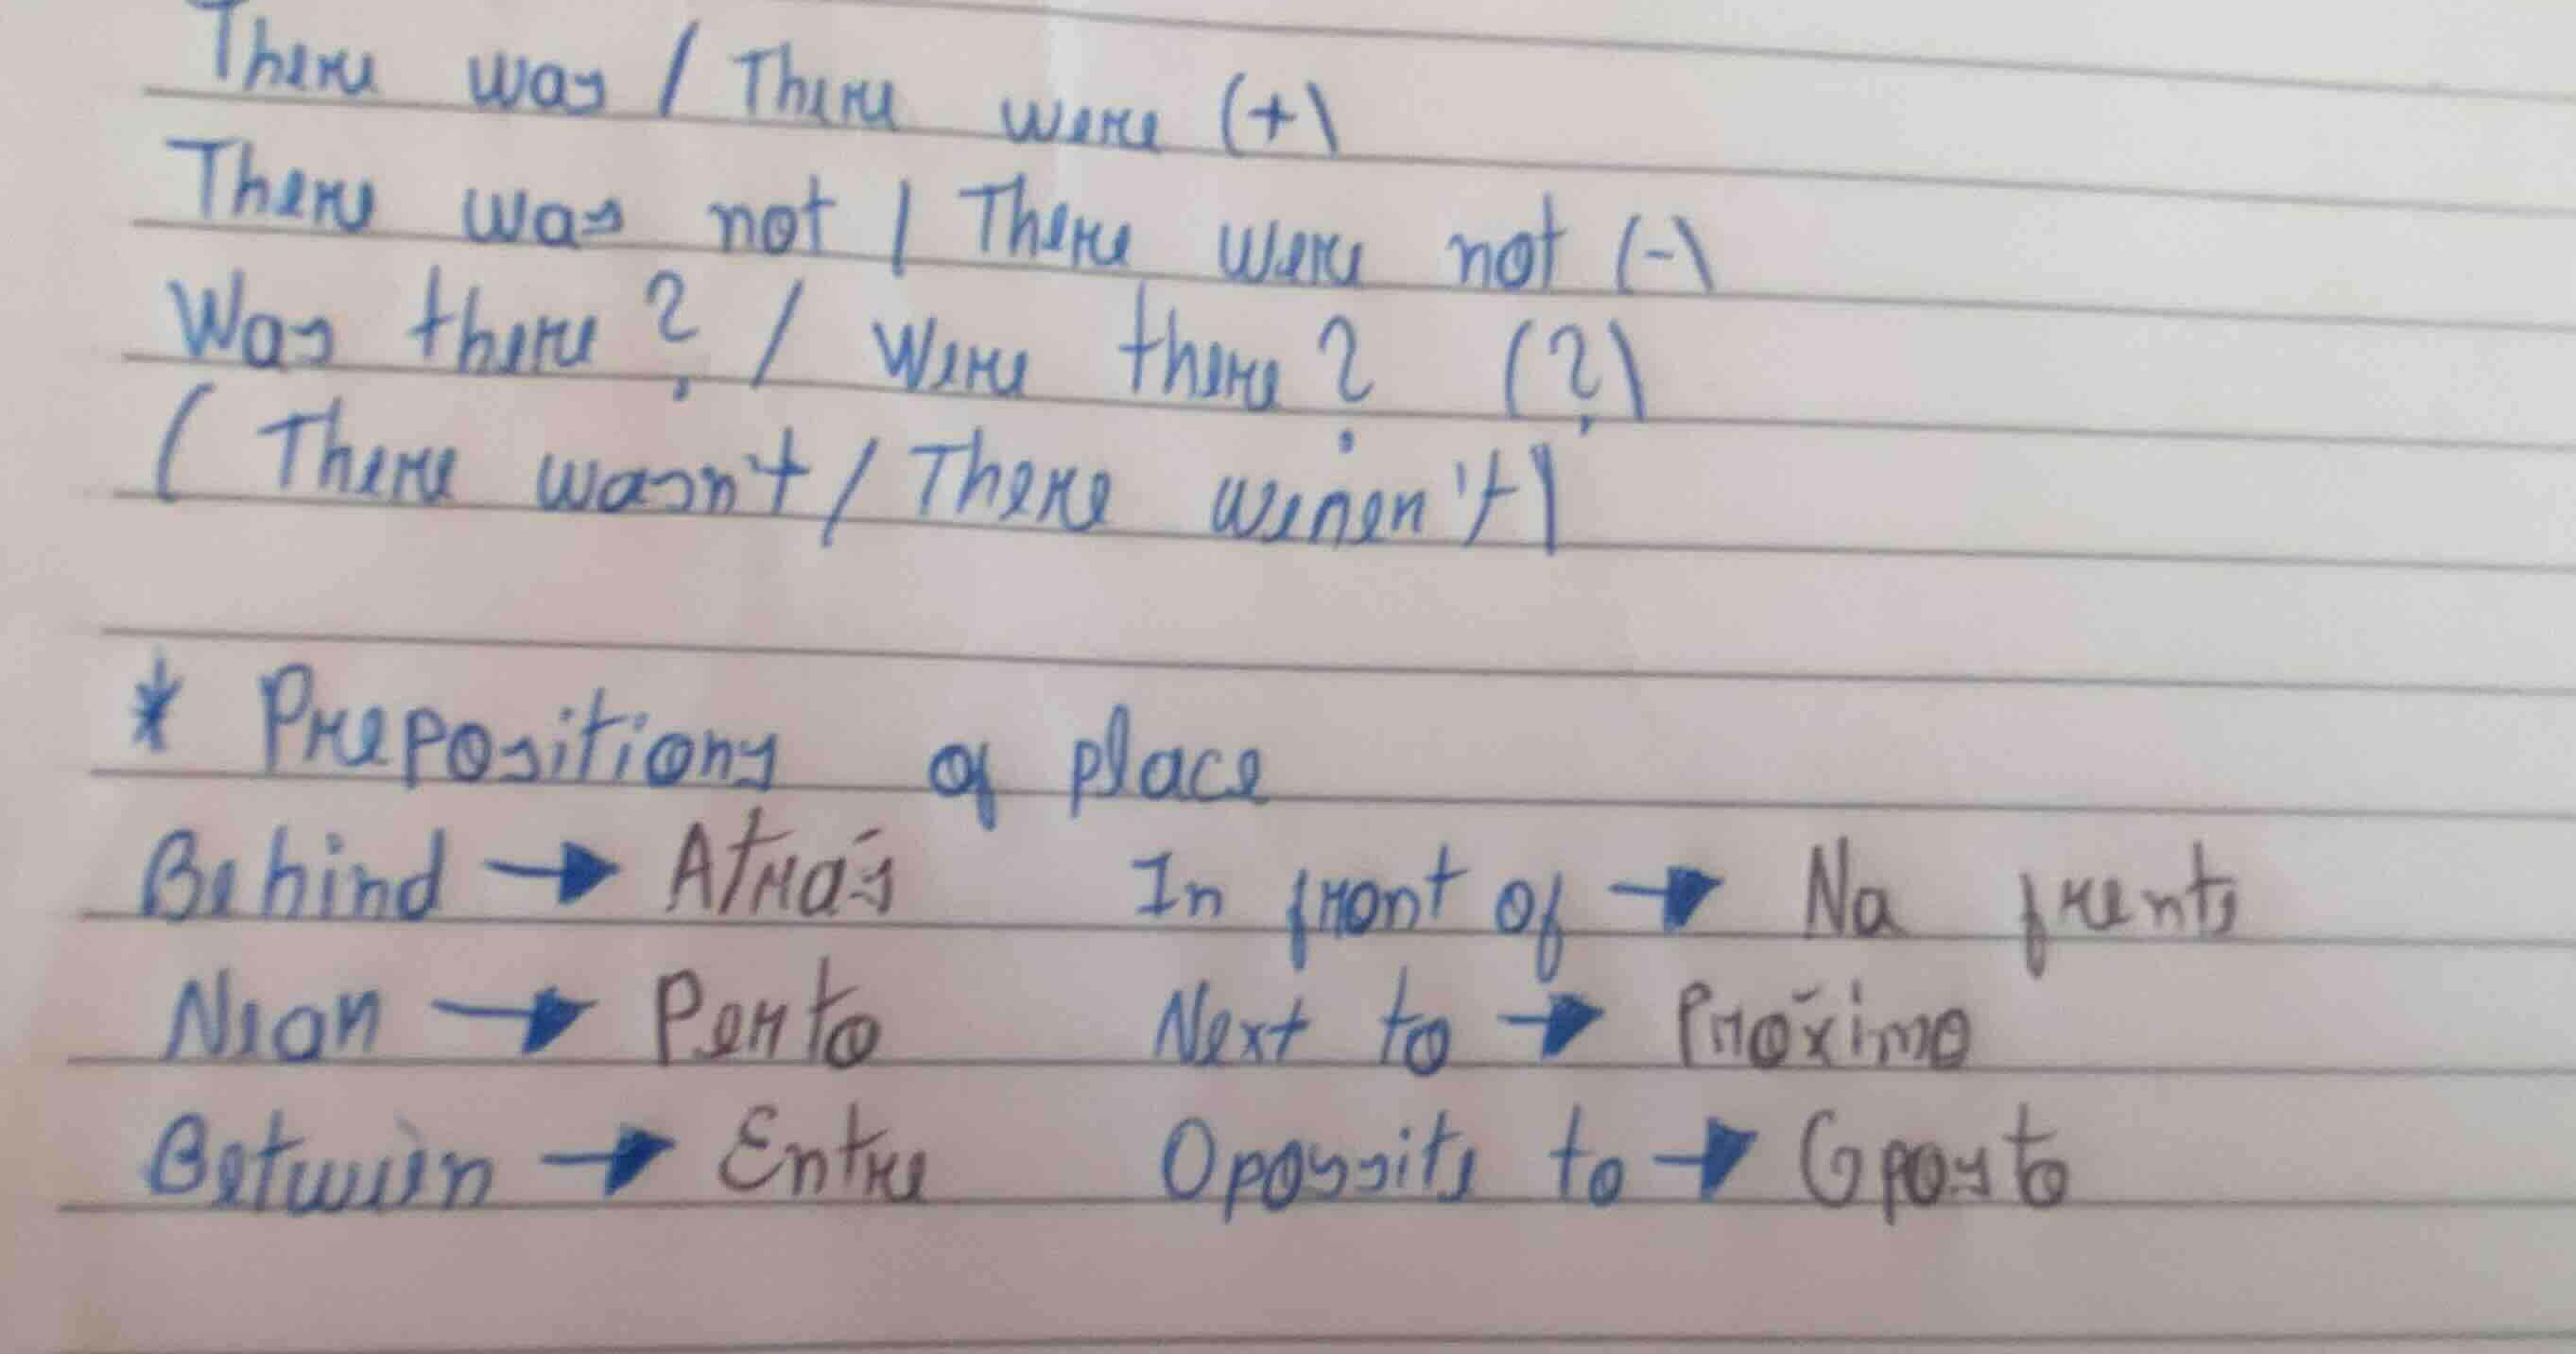 There was / There were (+)
There was not / There were not (-)
Was there? / Were there? (?)
(There wasn't / There weren't)
* Prepositions of place
Behind → Atrás In front of → Na frente
Near → Perto Next to → Próximo
Between → Entre Opossite to → Oposto